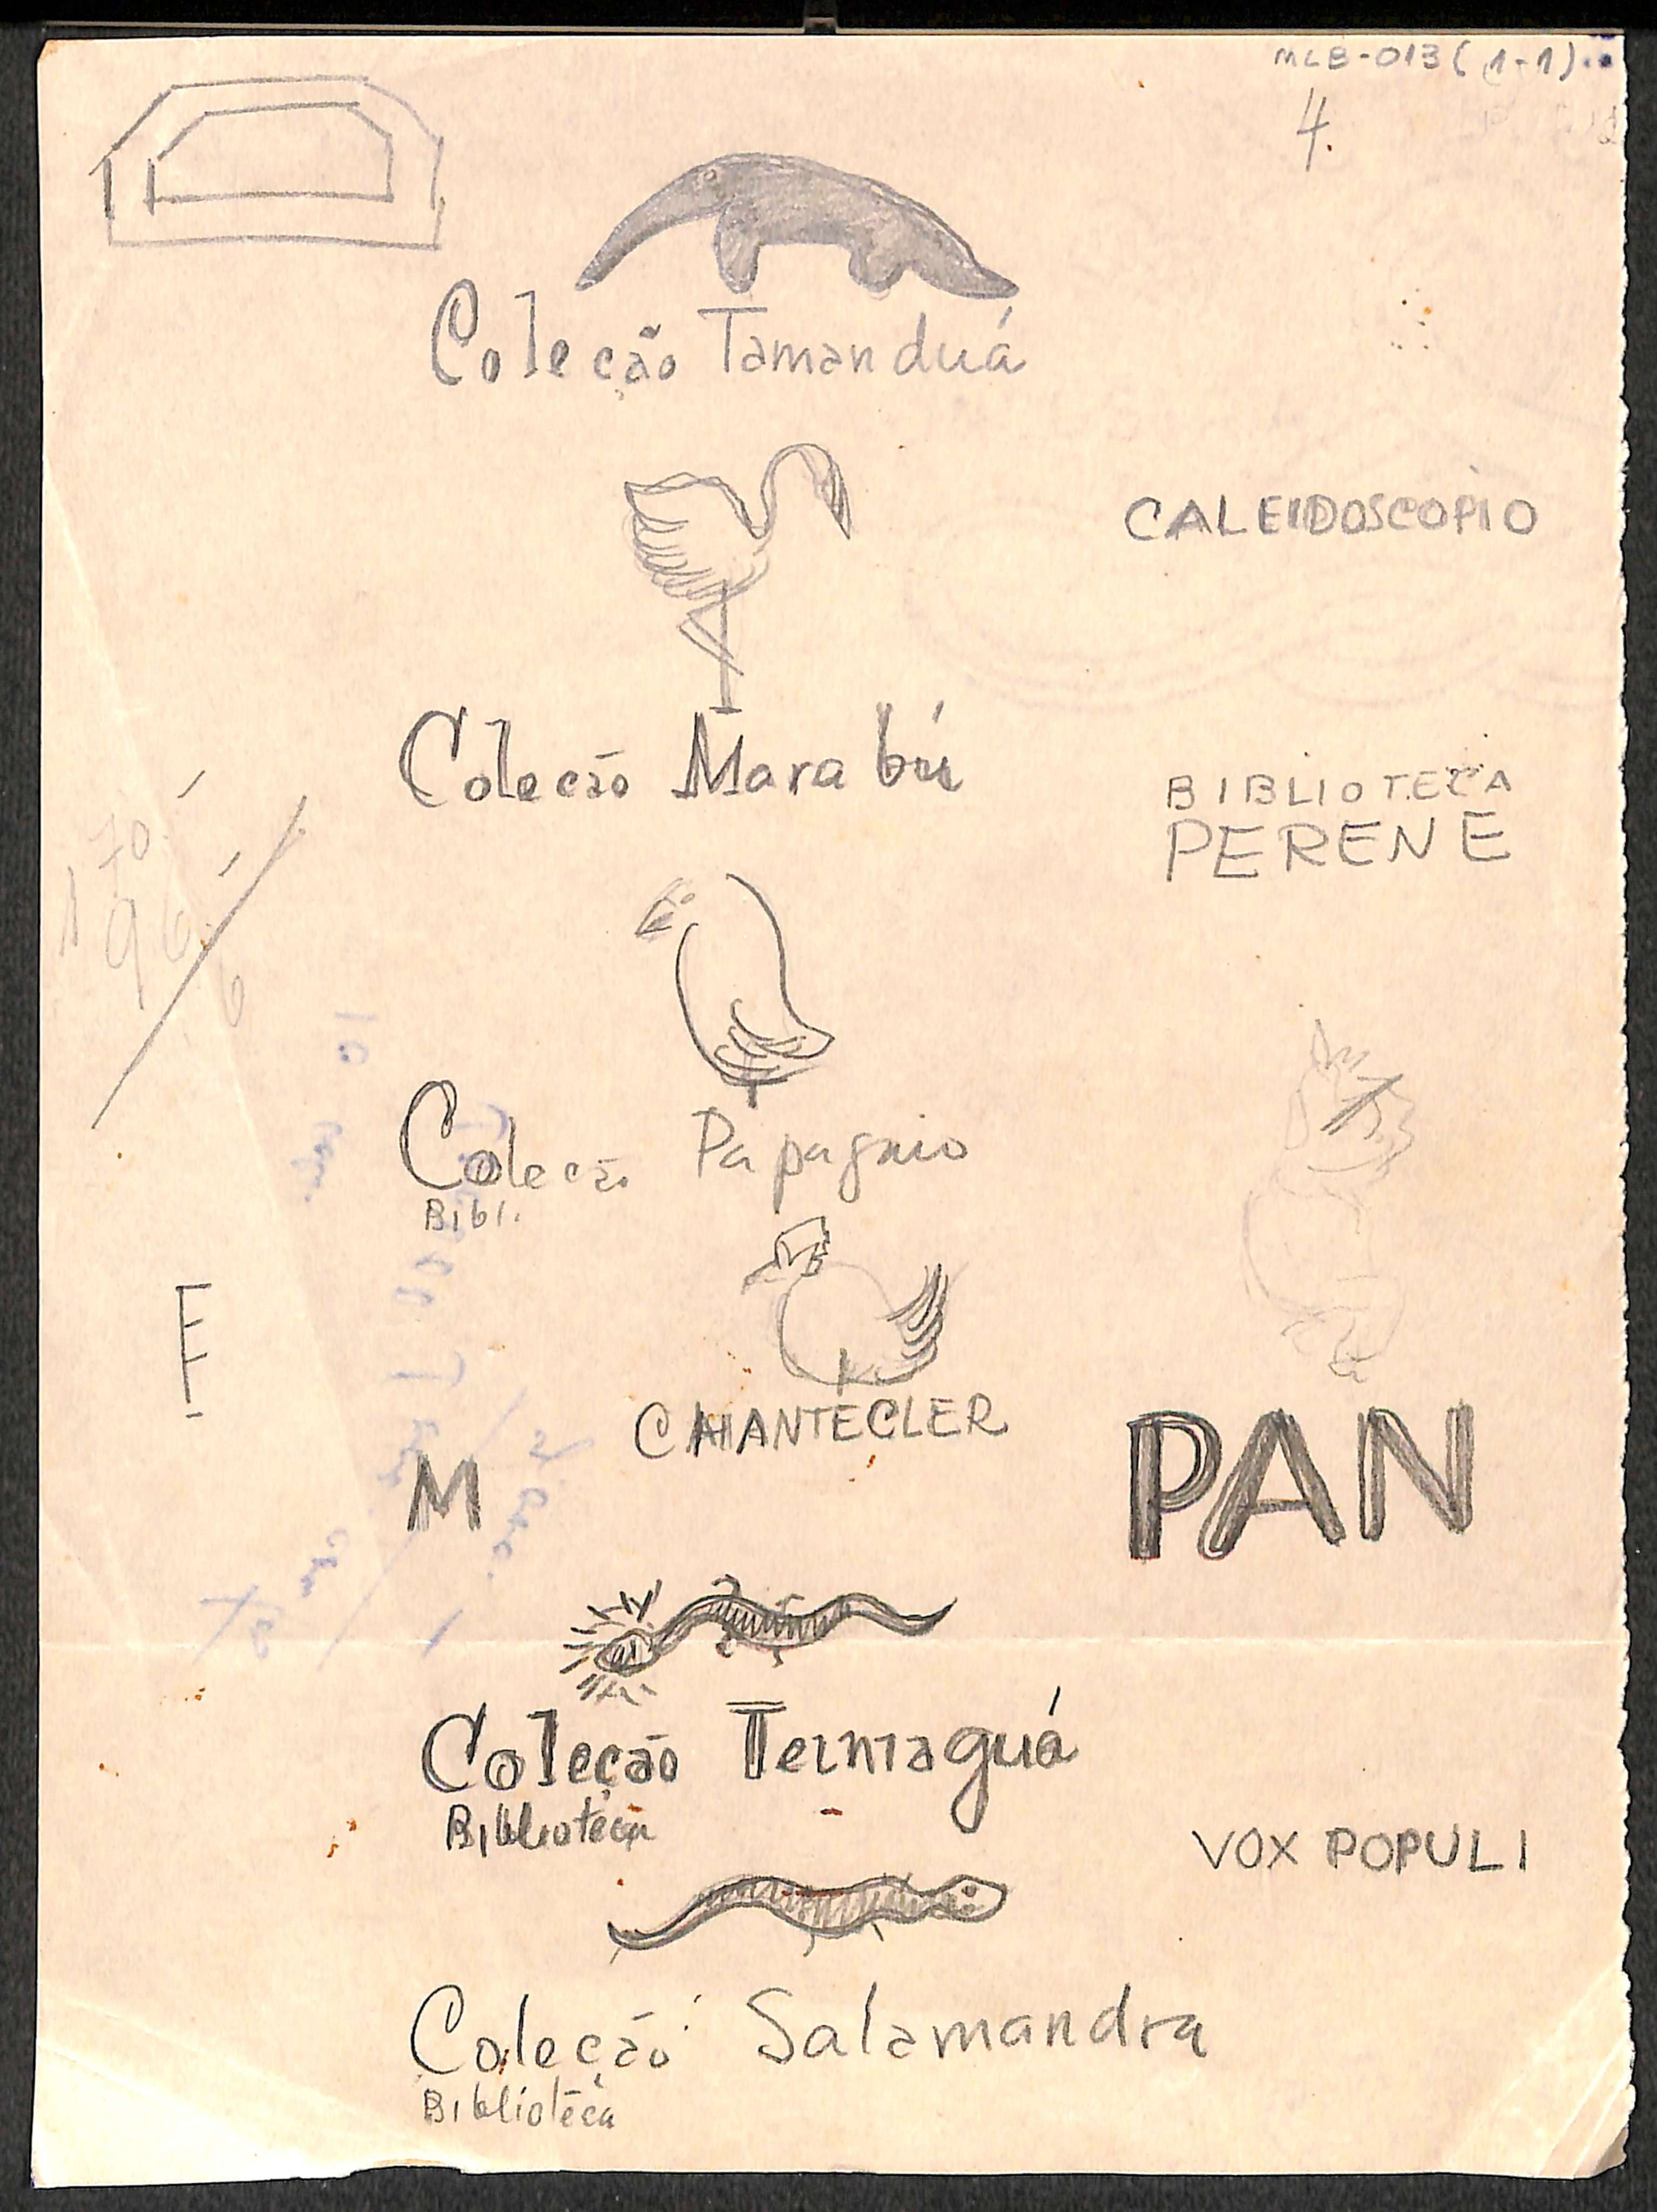 MLB-013 (1-1)
4.
Coleção Tamanduá
CALEIDOSCOPIO
Coleção Marabú
BIBLIOTECA
PERENE
70
196
6
10
Coleção Papagaio
Bibl.
E
CHANTECLER
M
PAN
Coleção Teiniaguá
Biblioteca
VOX POPULI
Coleção Salamandra
Biblioteca